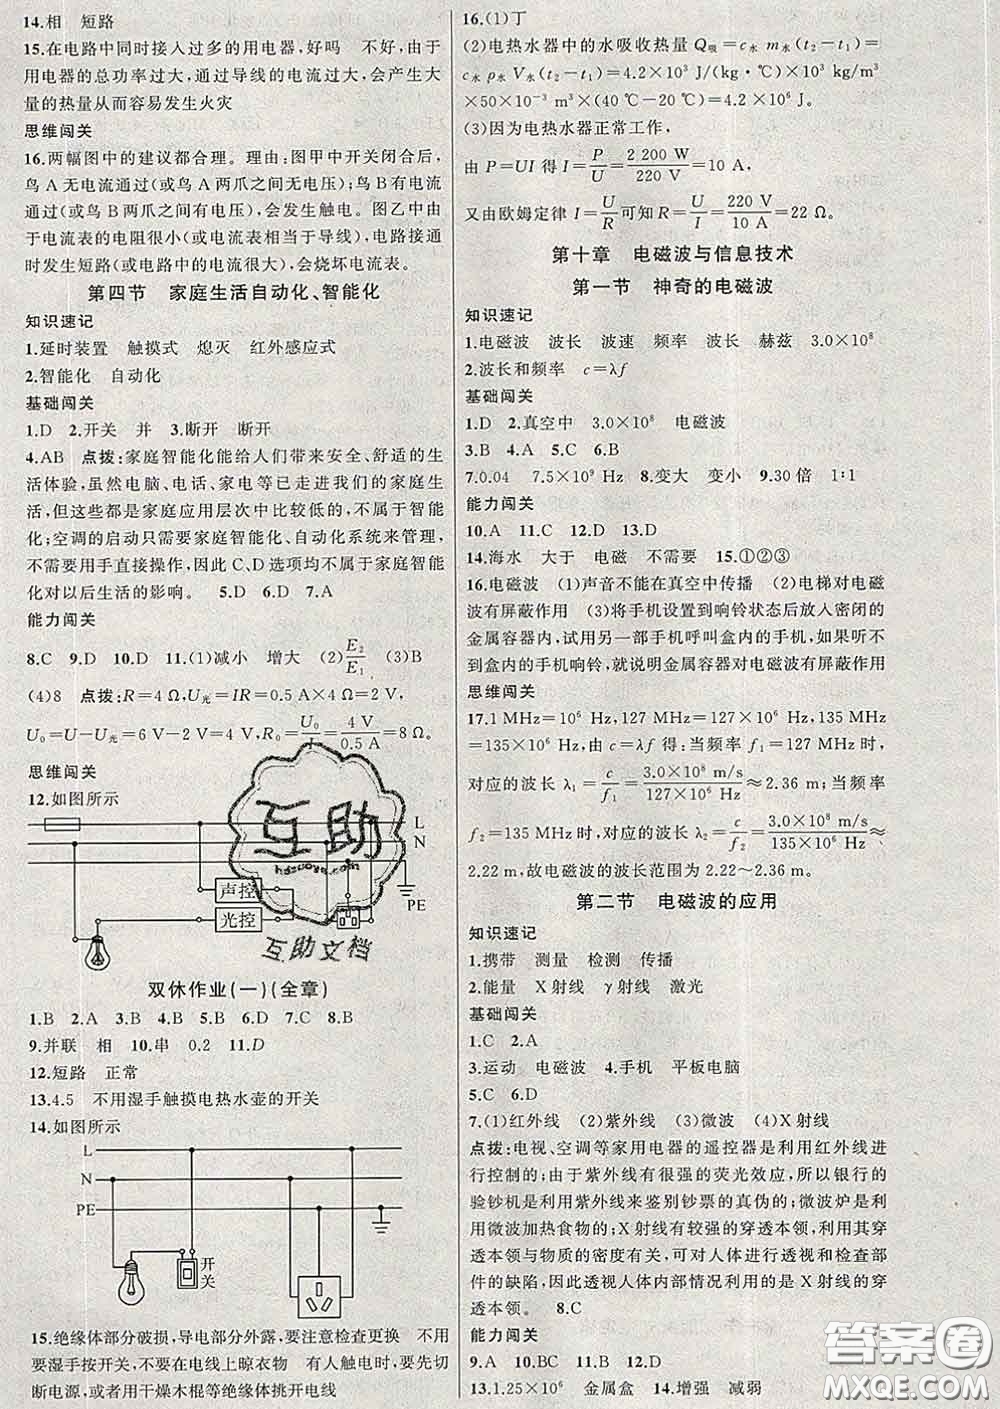 14.相　短路
15.在电路中同时接入过多的用电器,好吗　不好,由于
用电器的总功率过大,通过导线的电流过大,会产生大
量的热量从而容易发生火灾
思维闯关
16.两幅图中的建议都合理。理由:图甲中开关闭合后,
鸟 A 无电流通过(或鸟 A 两爪之间无电压),鸟 B 有电流
通过(或鸟 B 两爪之间有电压),会发生触电。图乙中由
于电流表的电阻很小(或电流表相当于导线),电路接通
时发生短路(或电路中的电流很大),会烧坏电流表。
第四节　家庭生活自动化、智能化
知识速记
1.延时装置　触摸式　熄灭　红外感应式
2.智能化　自动化
基础闯关
1.D　2.开关　并　3.断开　断开
4.AB　点拨:家庭智能化能给人们带来安全、舒适的生
活体验,虽然电脑、电话、家电等已走进我们的家庭生
活,但这些都是家庭应用层次中比较低的,不属于智能
化;空调的启动只需要家庭智能化、自动化系统来管理,
不需要用手直接操作,因此 C、D 选项均不属于家庭智能
化对以后生活的影响。　5.D　6.D　7.A
能力闯关
8.C　9.D　10.D　11.(1)减小　增大　(2)E₂/E₁　(3)B
(4)8　点拨:R=4 Ω,U光=IR=0.5 A×4 Ω=2 V,
U₀=U-U光=6 V-2 V=4 V,R₀=U₀/I=4 V/0.5 A=8 Ω。
思维闯关
12.如图所示
L
N
PE
声控
光控
双休作业(一)(全章)
1.B　2.A　3.B　4.B　5.B　6.D　7.C　8.B
9.并联　相　10.串　0.2　11.D
12.短路　正常
13.4.5　不用湿手触摸电热水壶的开关
14.如图所示
L
N
PE
开
关
15.绝缘体部分破损,导电部分外露,要注意检查更换　不用
要湿手按开关,不要在电线上晾衣物　有人触电时,要先切
断电源,或者用干燥木棍等绝缘体挑开电线
16.(1)丁
(2)电热水器中的水吸收热量 Q吸=c水 m水(t₂-t₁)=
c水 ρ水 V水(t₂-t₁)=4.2×10³ J/(kg·℃)×10³ kg/m³
×50×10⁻³ m³×(40 ℃-20 ℃)=4.2×10⁶ J。
(3)因为电热水器正常工作,
由 P=UI 得 I=P/U=2 200 W/220 V=10 A,
又由欧姆定律 I=U/R可知 R=U/I=220 V/10 A=22 Ω。
第十章　电磁波与信息技术
第一节　神奇的电磁波
知识速记
1.电磁波　波长　波速　频率　波长　赫兹　3.0×10⁸
2.波长和频率　c=λf
基础闯关
1.D　2.真空中　3.0×10⁸　电磁波
3.B　4.A　5.C　6.B
7.0.04　7.5×10⁹ Hz　8.变大　变小　9.30 倍　1:1
能力闯关
10.A　11.C　12.D　13.D
14.海水　大于　电磁　不需要　15.①②③
16.电磁波　(1)声音不能在真空中传播　(2)电梯对电磁
波有屏蔽作用　(3)将手机设置到响铃状态后放入密闭的
金属容器内,试用另一部手机呼叫盒内的手机,如果听不
到盒内的手机响铃,就说明金属容器对电磁波有屏蔽作用
思维闯关
17.1 MHz=10⁶ Hz,127 MHz=127×10⁶ Hz,135 MHz
=135×10⁶ Hz,由 c=λf 得:当频率 f₁=127 MHz 时,
对应的波长 λ₁=c/f₁=3.0×10⁸ m/s/127×10⁶ Hz≈2.36 m;当频率
f₂=135 MHz时,对应的波长 λ₂=c/f₂=3.0×10⁸ m/s/135×10⁶ Hz≈
2.22 m,故电磁波的波长范围为 2.22~2.36 m。
第二节　电磁波的应用
知识速记
1.携带　测量　检测　传播
2.能量　X 射线　γ射线　激光
基础闯关
1.C　2.A
3.运动　电磁波　4.手机　平板电脑
5.C　6.D
7.(1)红外线　(2)紫外线　(3)微波　(4)X 射线
点拨:电视、空调等家用电器的遥控器是利用红外线进
行控制的;由于紫外线有很强的荧光效应,所以银行的
验钞机是利用紫外线来鉴别钞票的真伪的;微波炉是利
用微波加热食物的;X 射线有较强的穿透本领,而且其穿
透本领与物质的密度有关,可对人体进行透视和检查部
件的缺陷,因此透视人体内部情况利用的是 X 射线的穿
透本领。　8.C
能力闯关
9.A　10.BC　11.B　12.D
13.1.25×10⁶　金属盒　14.增强　减弱
互助
hdzuoye.com
互助文档
答案圈
MXQE.COM